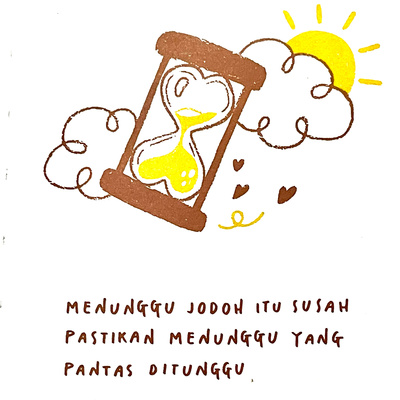 MENUNGGU JODOH ITU SUSAH
PASTIKAN MENUNGGU YANG
PANTAS DITUNGGU.